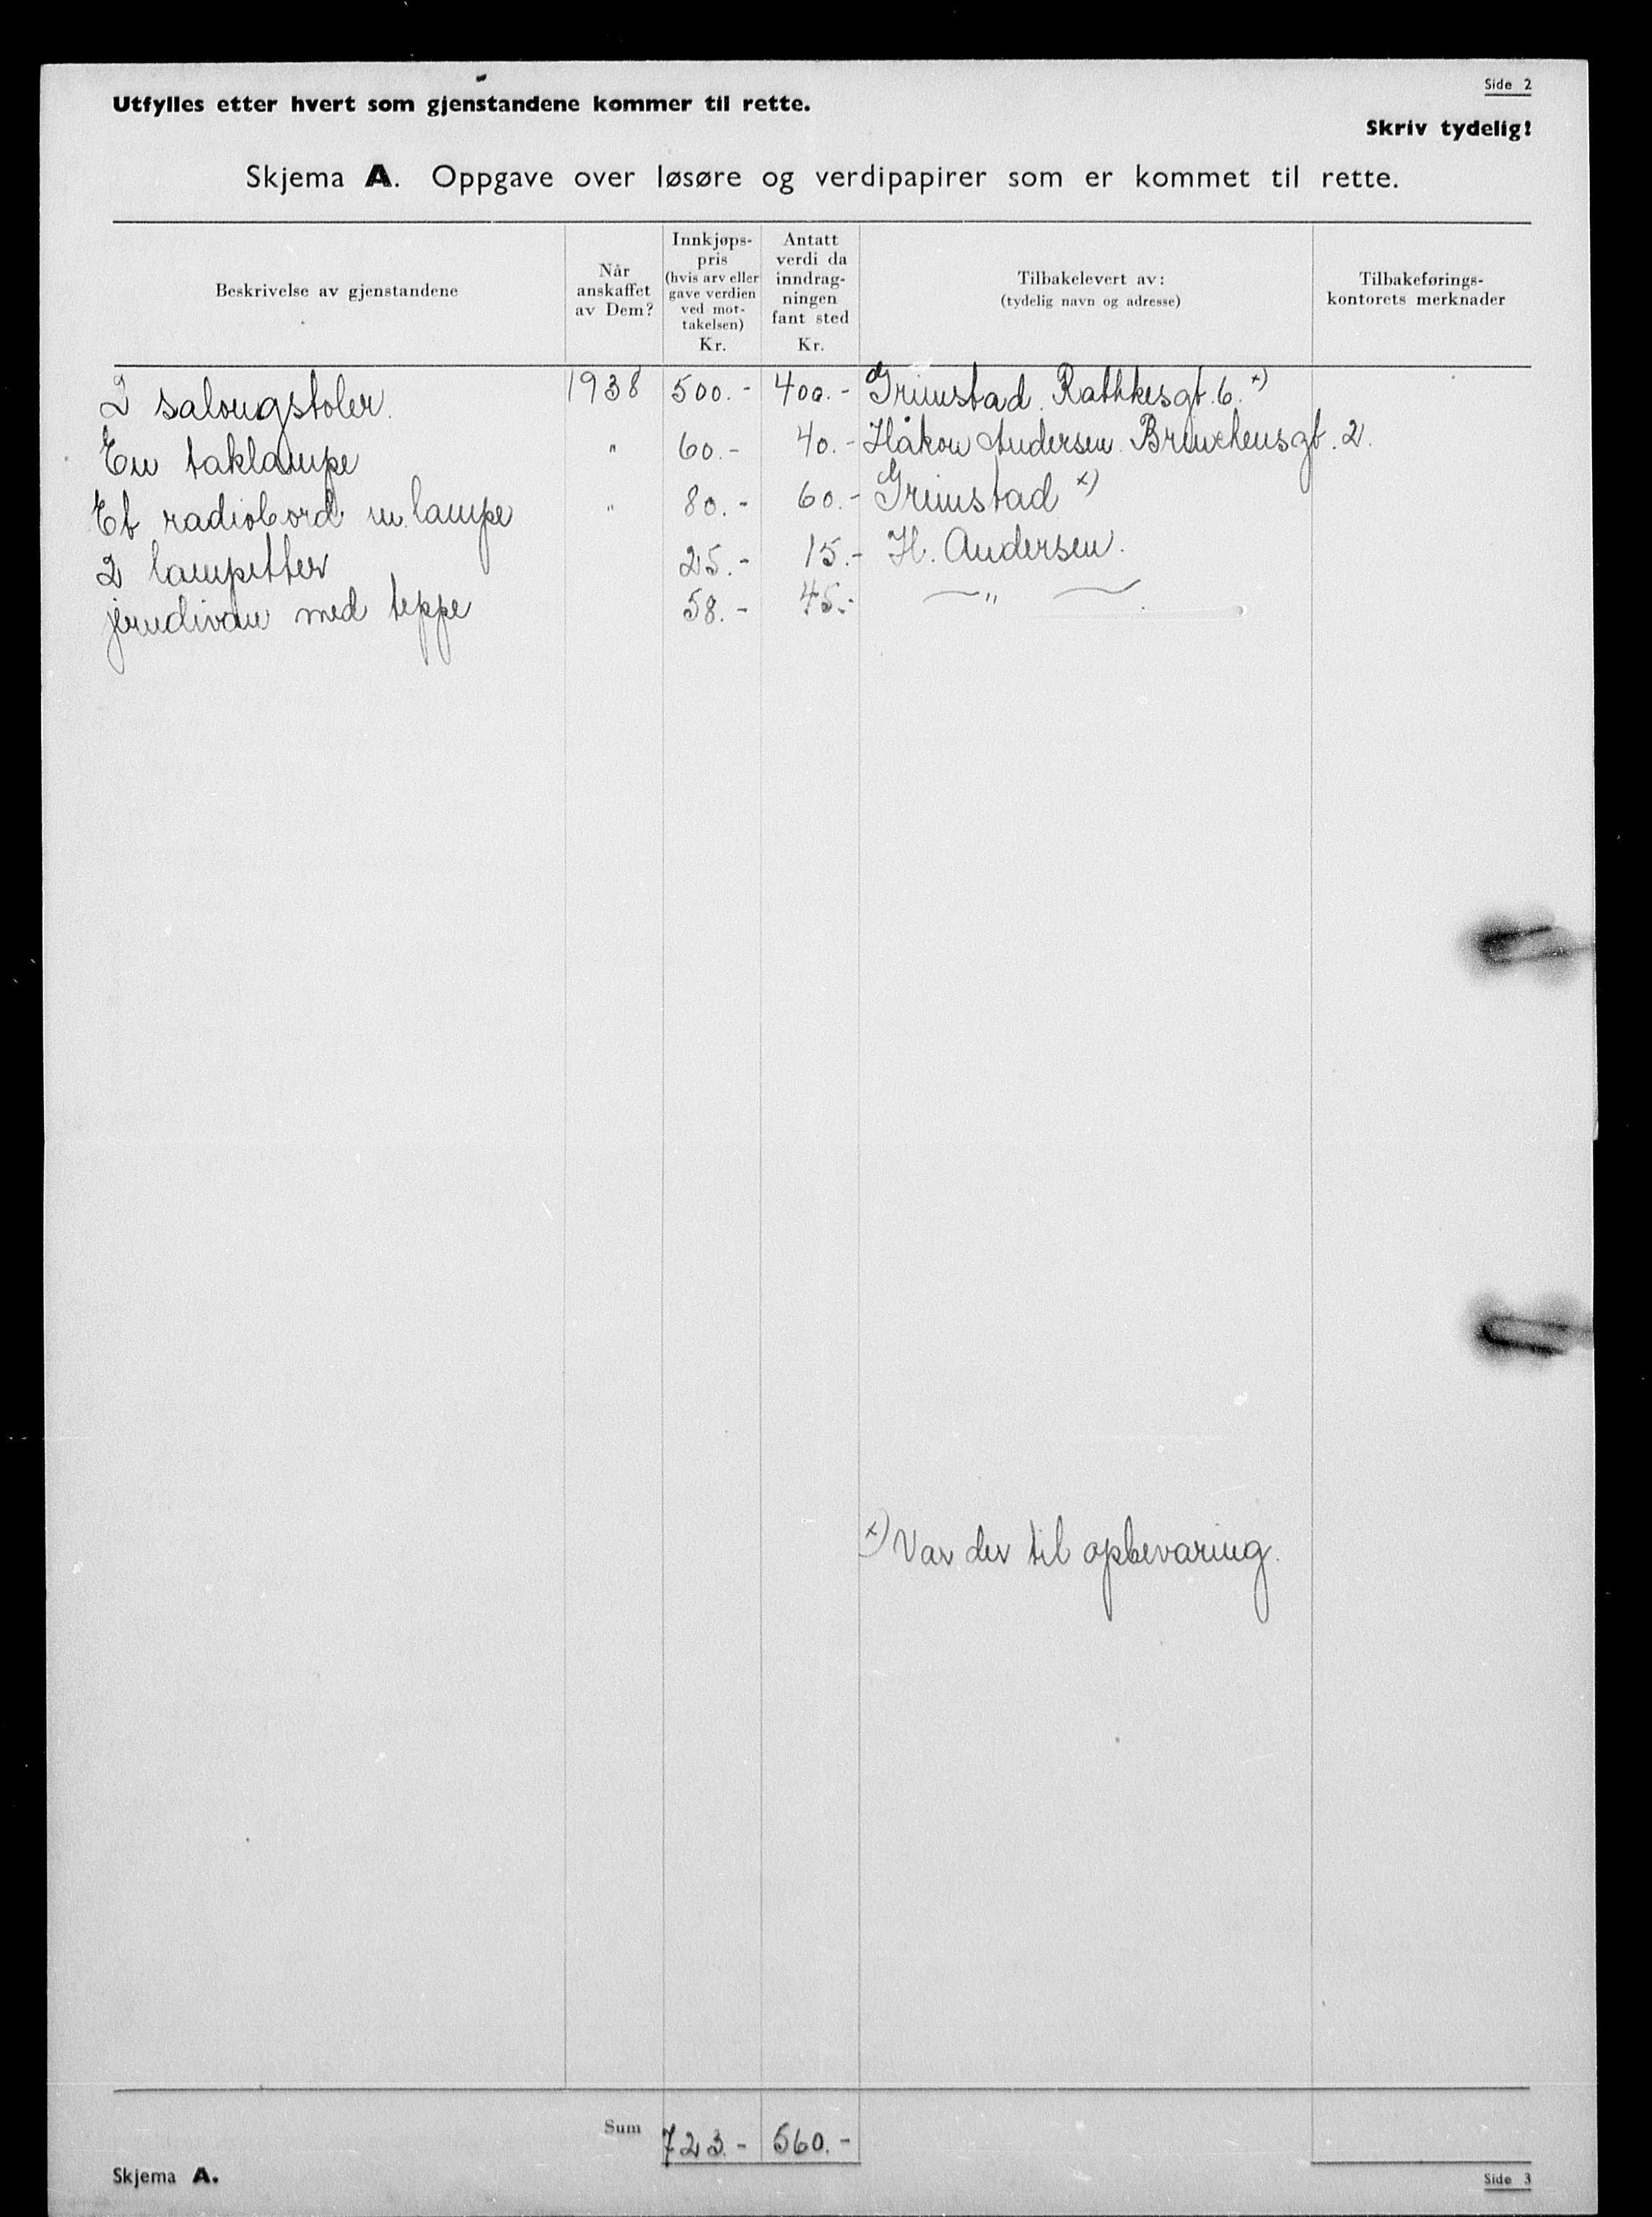 Side 2
Utfylles etter hvert som gjenstandene kommer til rette.
Skriv tydelig!
Skjema A. Oppgave over løsøre og verdipapirer som er kommet til rette.
Beskrivelse av gjenstandene
Når
anskaffet
av Dem?
Innkjøps-
pris
(hvis arv eller
gave verdien
ved mot-
takelsen)
Kr.
Antatt
verdi da
inndrag-
ningen
fant sted
Kr.
Tilbakelevert av:
(tydelig navn og adresse)
Tilbakeførings-
kontorets merknader
2 salongstoler. 1938 500.- 400.- Grimstad. Rathkesgt. 6. x)
En taklampe " 60.- 40.- Håkon Andersen. Brinchensgt. 2.
Et radiobord m. lampe " 80.- 60.- Grimstad x)
2 lampetter 25.- 15.- H. Andersen.
jerndivan med teppe 58.- 45.- — " —
x) Var der til opbevaring.
Sum 723.- 560.-
Skjema A.
Side 3